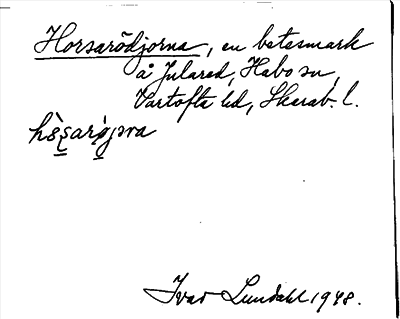 Horsarödjorna, en betesmark
å Julared, Habo sn,
Vartofta hd, Skarab. l.
Ivar Lundahl 1948.